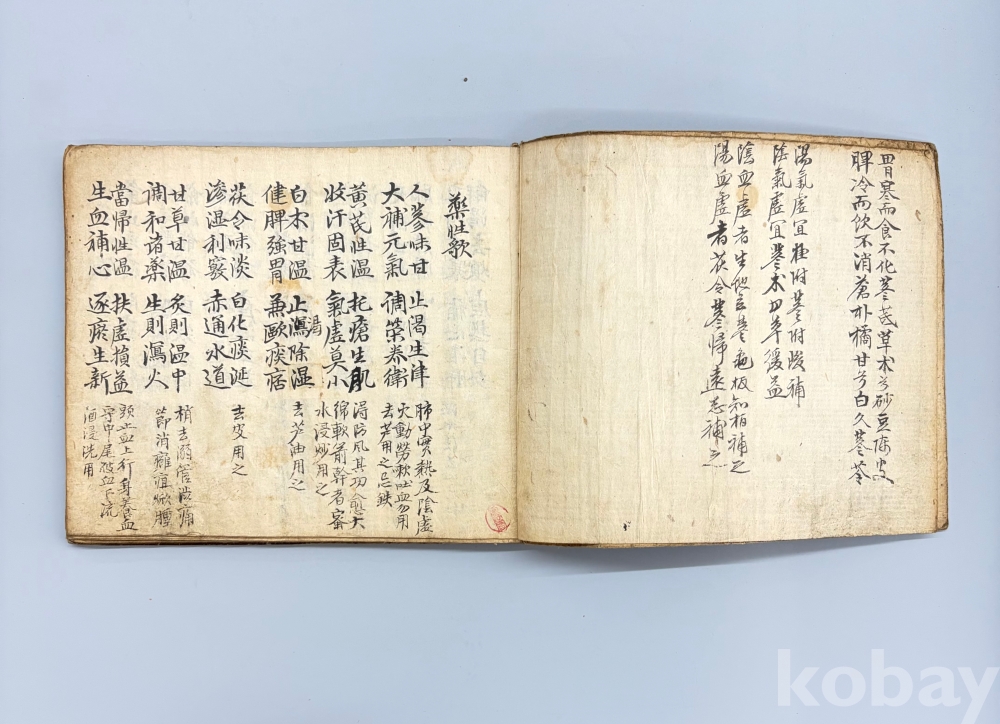 胃寒而食不化蔘茋草朮兮砂豆陳皮
脾冷而飲不消蒼朴橘甘兮白久蔘苓
陽氣虛宜桂附蔘附殷補
陰氣虛宜蔘朮甘草緩益
陰血虛者生地玄蔘龜板知柏補之
陽血虛者茯令蔘歸遠志補之
藥性歌
人蔘味甘 止渴生津 肺中實熱及陰虛
大補元氣 調榮養衛 火動勞嗽吐血勿用
去芦用之忌鉄
黃芪性溫 托瘡生肌 得防風其功愈大
收汗固表 氣虛莫小 綿軟箭幹者蜜
水浸炒用之
白朮甘溫 止瀉除湿 去芦油用之
健脾強胃 兼歐痰痞
茯令味淡 白化痰涎 去皮用之
滲湿利竅 赤通水道
甘草甘温 炙則温中 梢去溺管澁痛
調和诸藥 生則瀉火 節消癰疽焮腫
當帰性温 扶虛損益 頭止血上行身養血
生血補心 逐瘀生新 守中尾破血下流
酒浸洗用
kobay